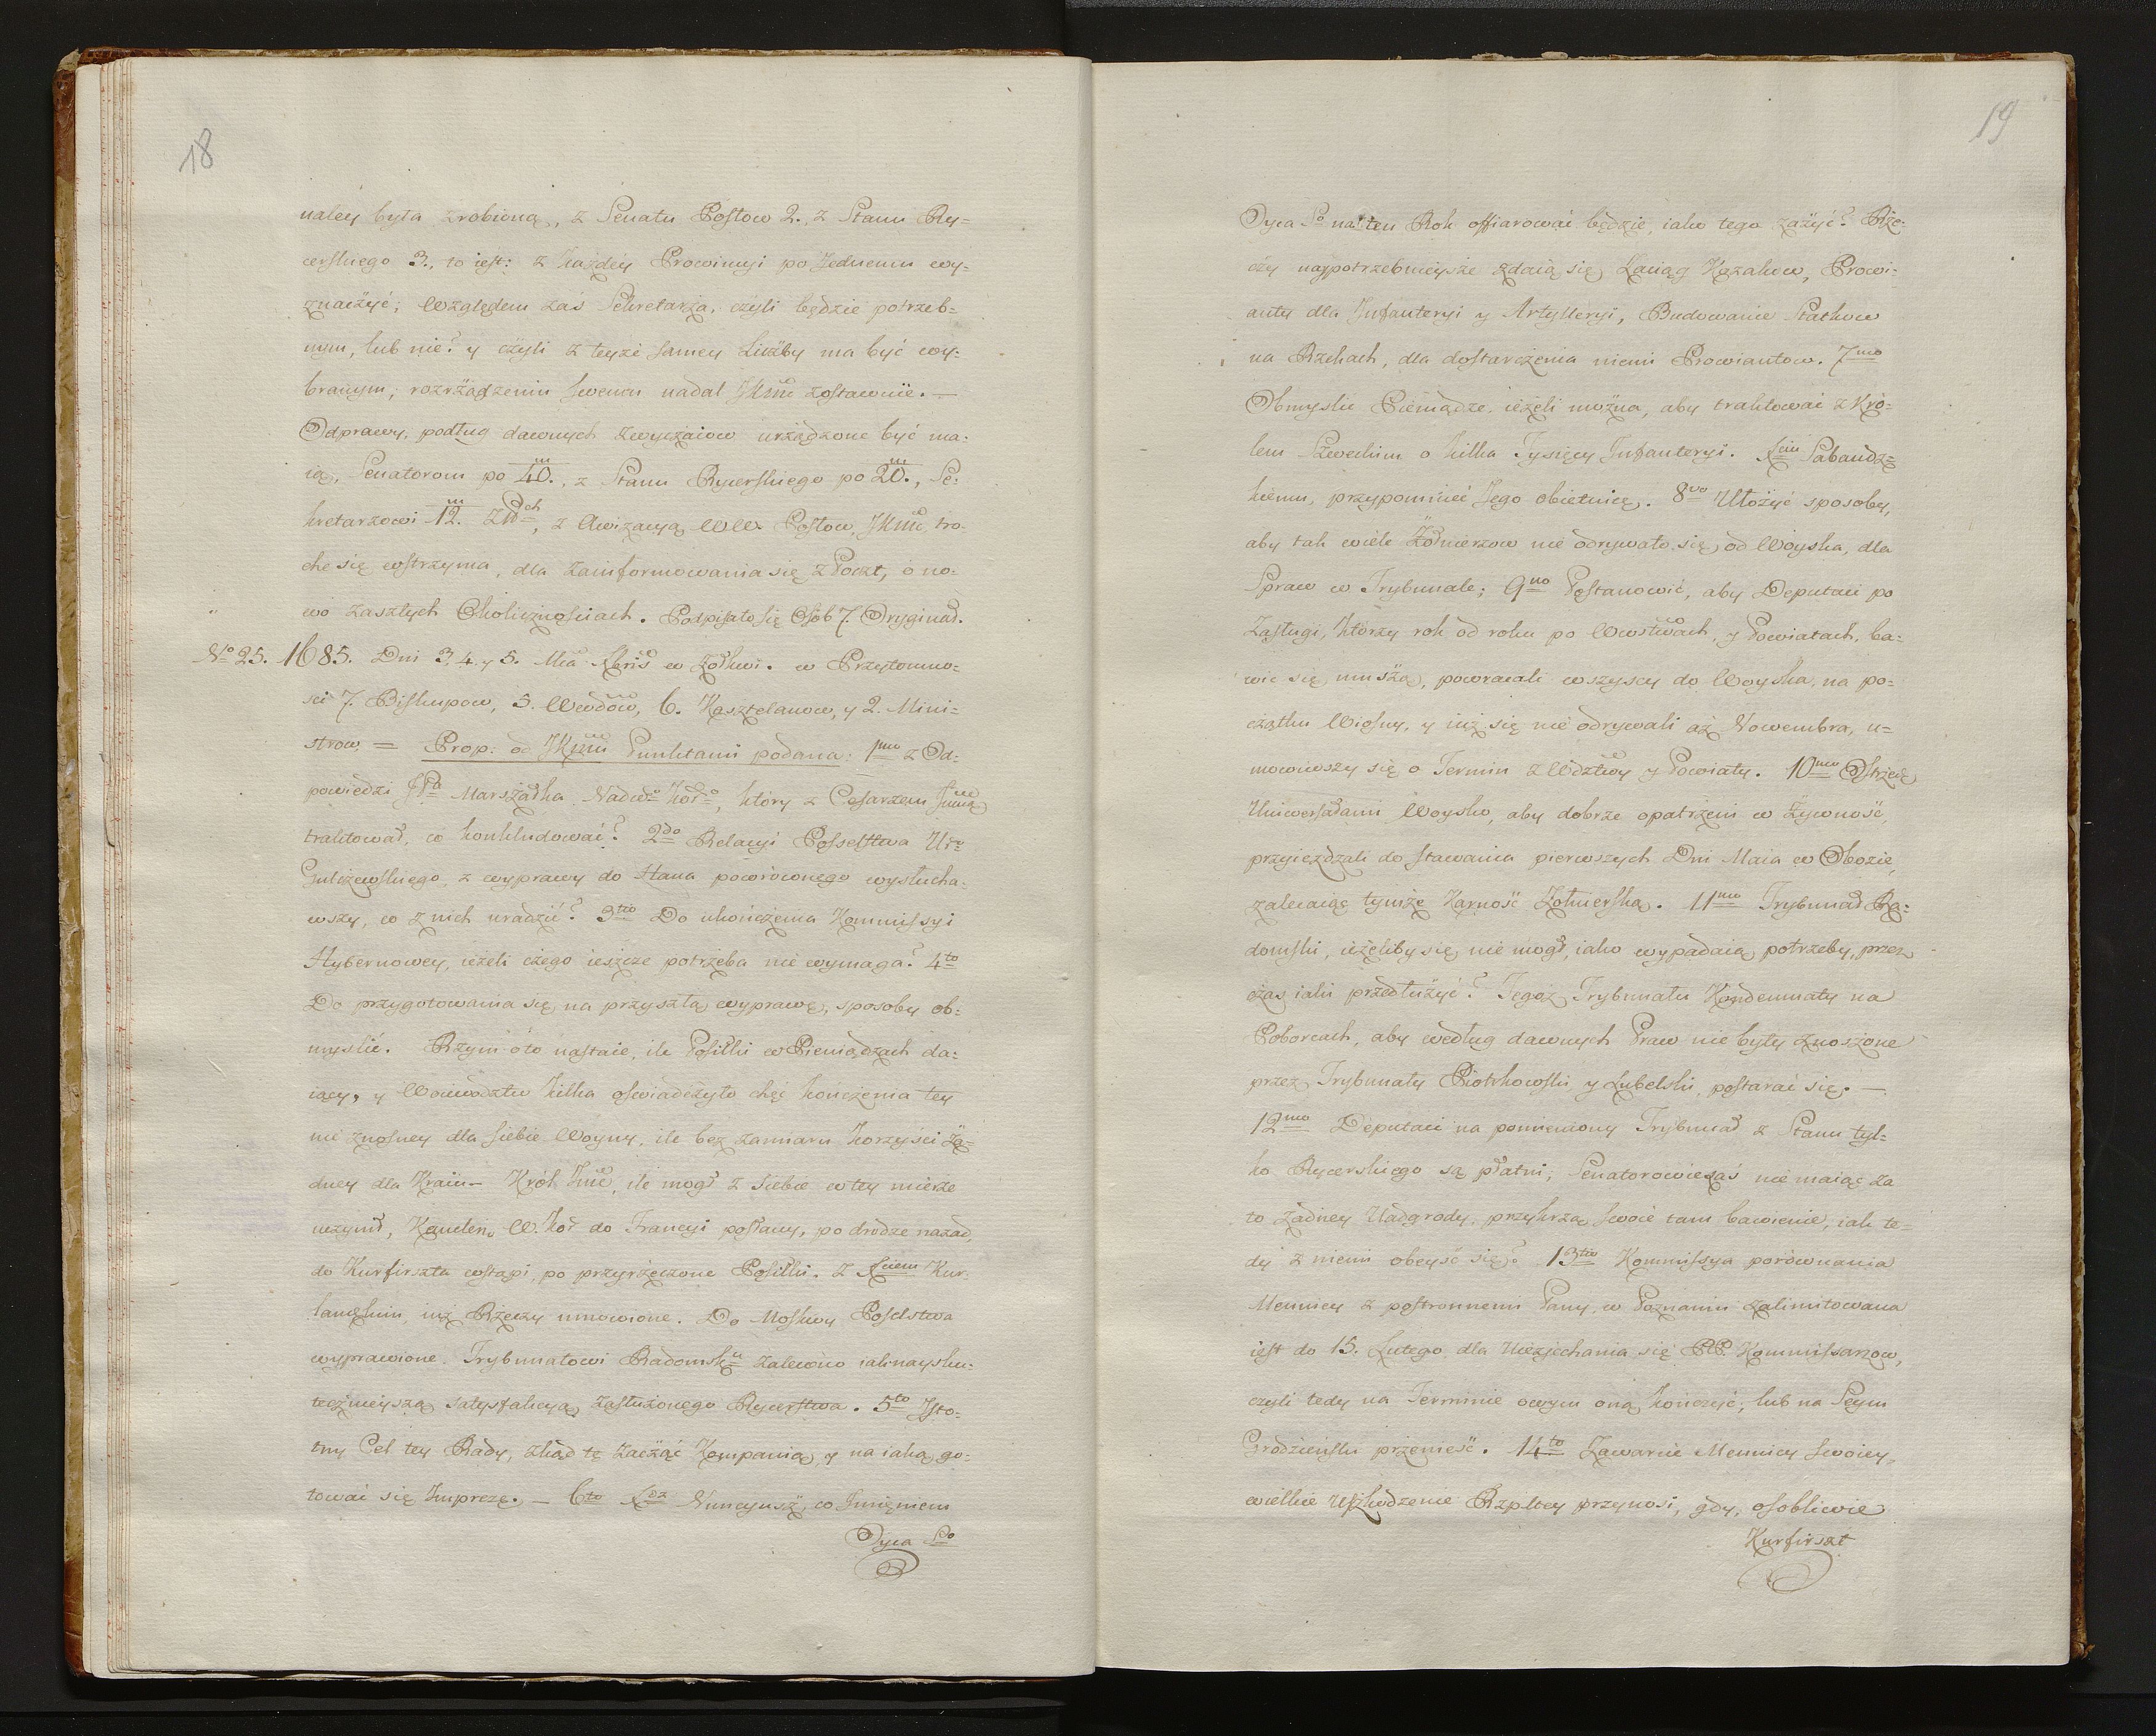 18
naley była zrobioną, z Senatu Posłow 2. z Stanu Ry=
cerskiego 3., to iest: z każdey Prowincyi po Jednemu wy-
znaczyć; Względem zaś Sekretarza, czyli będzie potrzeb=
nym, lub nie? y czyli z teyże samey Liczby ma być wy-
branym; rozrządzeniu swemu nadal JKmć zostawuie. —
Odprawy, podług dawnych zwyczaiow urządzone być ma-
ią, Senatorom po 40.m, z Stanu Rycerskiego po 20.m, Se-
kretarzowi 12.m Złch, z Awizacyą WW. Posłow, JKmć tro-
che się wstrzyma, dla zainformowania się z Poczt, o no-
wo zaszłych Okolicznościach. Podpisało się Osob 7. Oryginał.
No 25. 1685. Dni 3. 4. y 5. Mca Xbris w Żołkwi. w Przytomno=
ści 7. Biskupow, 5. Wwdow, 6. Kasztelanow, y 2. Mini=
strow. = Prop: od JKmci Punktami podana: 1mo z Od-
powiedzi JPa Marszałka Nadwo Koro, ktory z Cesarzem Jmcią
traktował, co konkludować? 2do Relacyi Posselstwa Uro
z wyprawy do Hana powroconego wysłucha-
wszy, co z nich uradzić? 3tio Do ukończenia Kommissyi
Hybernowey, ieżeli czego ieszcze potrzeba nie wymaga? 4to
Do przygotowania się na przyszłą wyprawę, sposoby ob-
myslić. Rzym o to nastaie, ile Posiłki w Pieniądzach da-
iący, y Woiewodztw kilka oswiadczyło chęć kończenia tey
nie znosney dla siebie Woyny, ile bez zamiaru korzyści żą-
dney dla Kraiu — Król Jmć, ile mogł z siebie w tey mierze
uczynił, Kancler W. Kor do Francyi posłany, po drodze nazad,
do Kurfirszta wstąpi, po przyrzeczone Posiłki. Z Xciem Kur-
lanskim, iuż Rzeczy umowione. Do Moskwy Poselstwa
wyprawione. Trybunałowi Radomsku zalecono iaknaysku-
tecznieyszą satysfakcyą zasłużonego Rycerstwa. 5to Isto-
tny Cel tey Rady, zkąd tę zacząć Kompanią, y na iaką go-
tować się Imprezę. — 6to Xdz Nuncyusz, co Imieniem
Oyca So
19
Oyca So na ten Rok offiarować będzie, iako tego zażyć? Rze-
czy naypotrzebnieysze zdaią się Zaciąg Kozakow, Prowi-
anty dla Infanteryi y Artylleryi, Budowanie Statkow
na Rzekach, dla dostarczenia niemi Prowiantow. 7mo
Obmyslić Pieniądze, ieżeli można, aby traktować z Kró-
lem Szwedzkim o kilka Tysięcy Infanteryi. Xciu Sabaudz=
kiemu, przypomnieć Jego obietnicę. 8vo Ułożyć sposoby,
aby tak wiele Żołnierzow nie odrywało się od Woyska, dla
Spraw w Trybunale; 9no Postanowić, aby Deputaci po
Zasługi, ktorzy rok od roku po Wwstwach, y Powiatach, ba-
wić się muszą, powracali wszyscy do Woyska, na po=
czątku Wiosny, y iuż się nie odrywali aż Nowembra, u=
mowiwszy się o Termin z Wdztwy y Powiaty. 10mo Ostrzedz
Uniwersałami Woysko, aby dobrze opatrzeni w Żywność,
przyieżdzali do stawania pierwszych Dni Maia w Obozie,
zalecaiąc tymże Karność Żołnierską. 11mo Trybunał Ra-
domski, ieżeliby się nie mogł, iako wypadaią potrzeby, przez
czas iaki przedłużyć? Tegoż Trybunału Kondemnaty na
Poborcach, aby według dawnych Praw nie były znoszone
przez Trybunały Piotrkowski y Lubelski, postarać się. —
12mo Deputaci na pomieniony Trybunał z Stanu tyl-
ko Rycerskiego są płatni; Senatorowie zaś nie maiąc za
to żadney Nadgrody, przykrzą swoie tam bawienie, iak te-
dy z niemi obeyść się? 13tio Kommissya porównania
Mennicy z postronnemi Pany, w Poznaniu zalimitowana
iest do 15. Lutego dla Niezjechania się PP. Kommissarzow,
czyli tedy na Terminie owym oną kończyć, lub na Seym
Grodzieński przenieść. 14to Zawarcie Mennicy swoiey,
wielkie Uszkodzenie Rzpltey przynosi, gdy, osobliwie
Kurfirszt